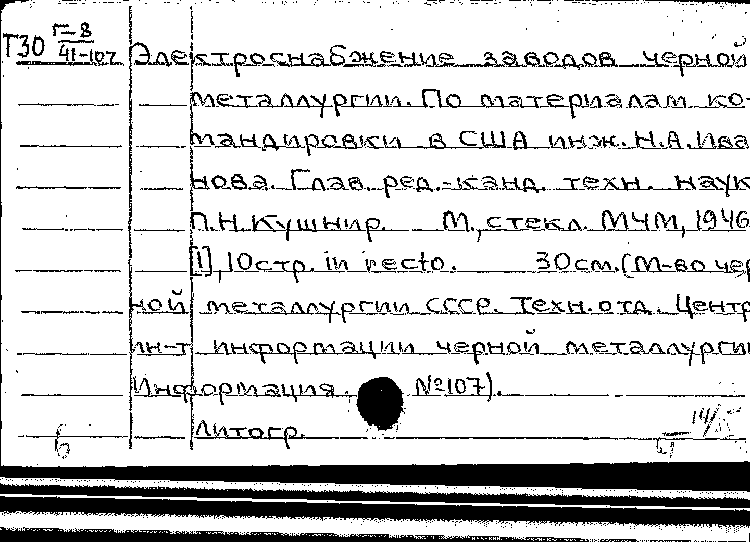 Т30 Г-8
41-107
Электроснабжение заводов черной
металлургии. По материалам ко-
мандировки в США инж. Н.А. Ива
нова. Глав. ред.-канд. техн. наук
П.Н. Кушнир. М., стекл. МЧМ, 1946
[1], 10 стр. in recto. 30 см. (М-во чер
ной металлургии СССР. Техн. отд. Центр
ин-т информации черной металлургии
Информация. №107).
Литогр.
14/
б